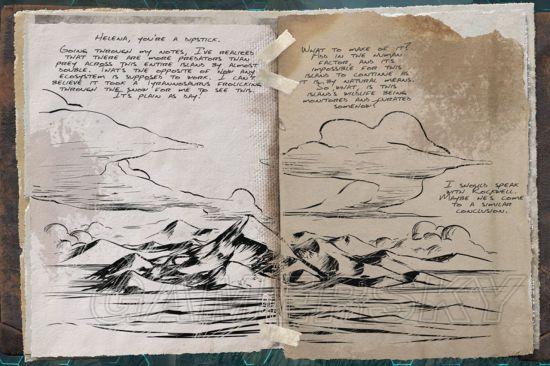 Helena, you're a dipstick.
Going through my notes, I've realized
that there are more predators than
prey across this entire island by almost
double. That's the opposite of how any
ecosystem is supposed to work. I can't
believe it took a Tyrannosaurus frolicking
through the snow for me to see this.
It's plain as day!
What to make of it?
Add in the human
factor, and it's
impossible for this
island to continue as
it is by natural means.
So what, is this
island's wildlife being
monitored and curated
somehow?
I should speak
with Rockwell.
Maybe he's come
to a similar
conclusion.